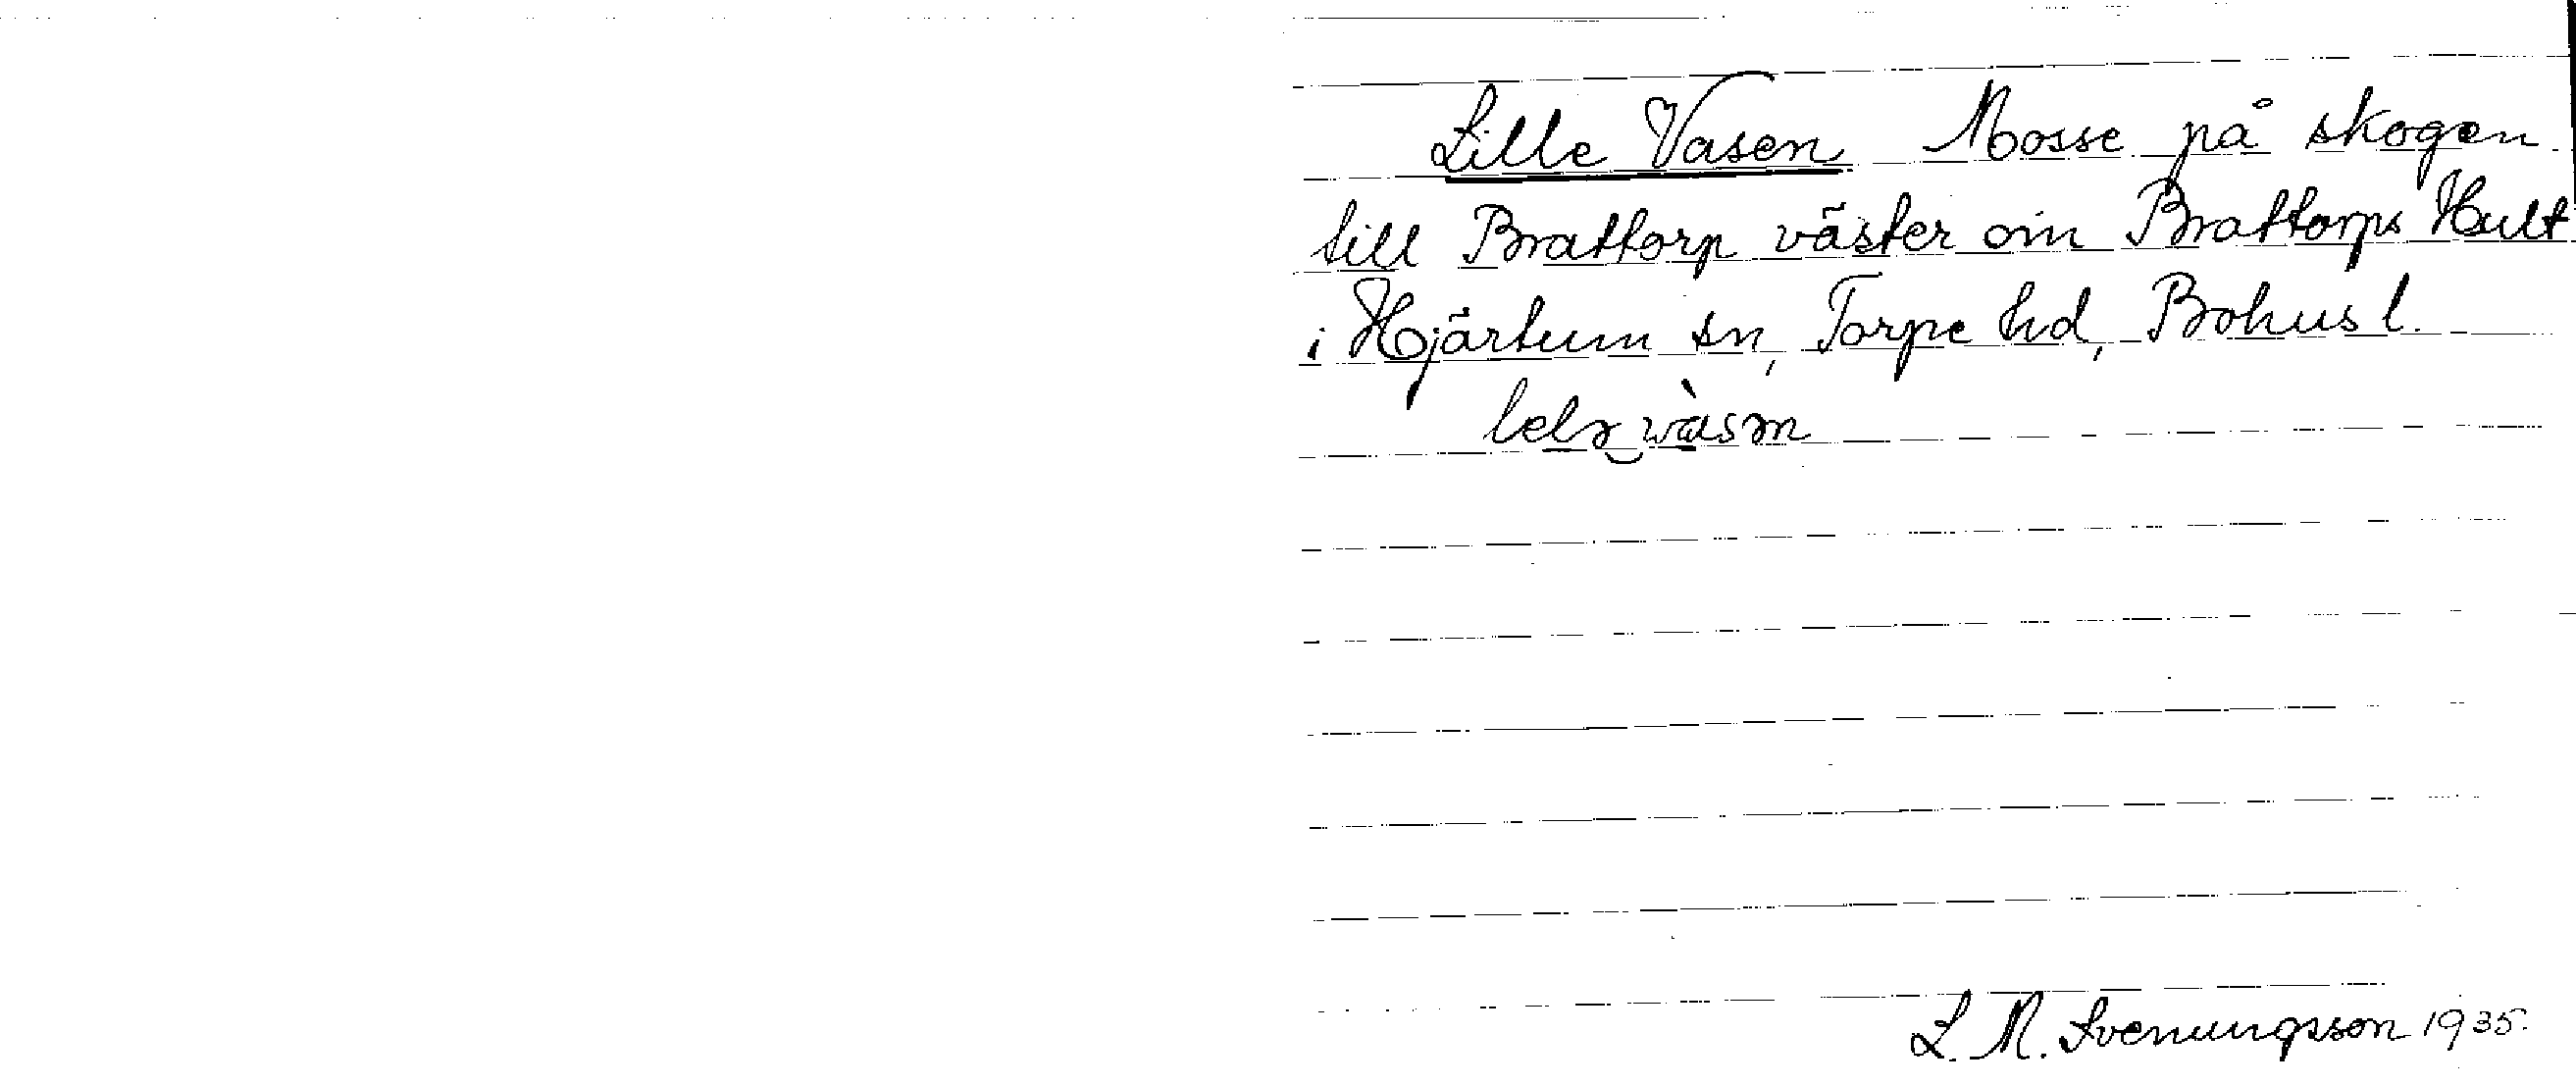 Lille Vasen Mosse på skogen
till Brattorp väster om Brattorps Hult
i Hjärtum sn, Torpe hd, Bohusl.
L. M. Svenungsson 1935.